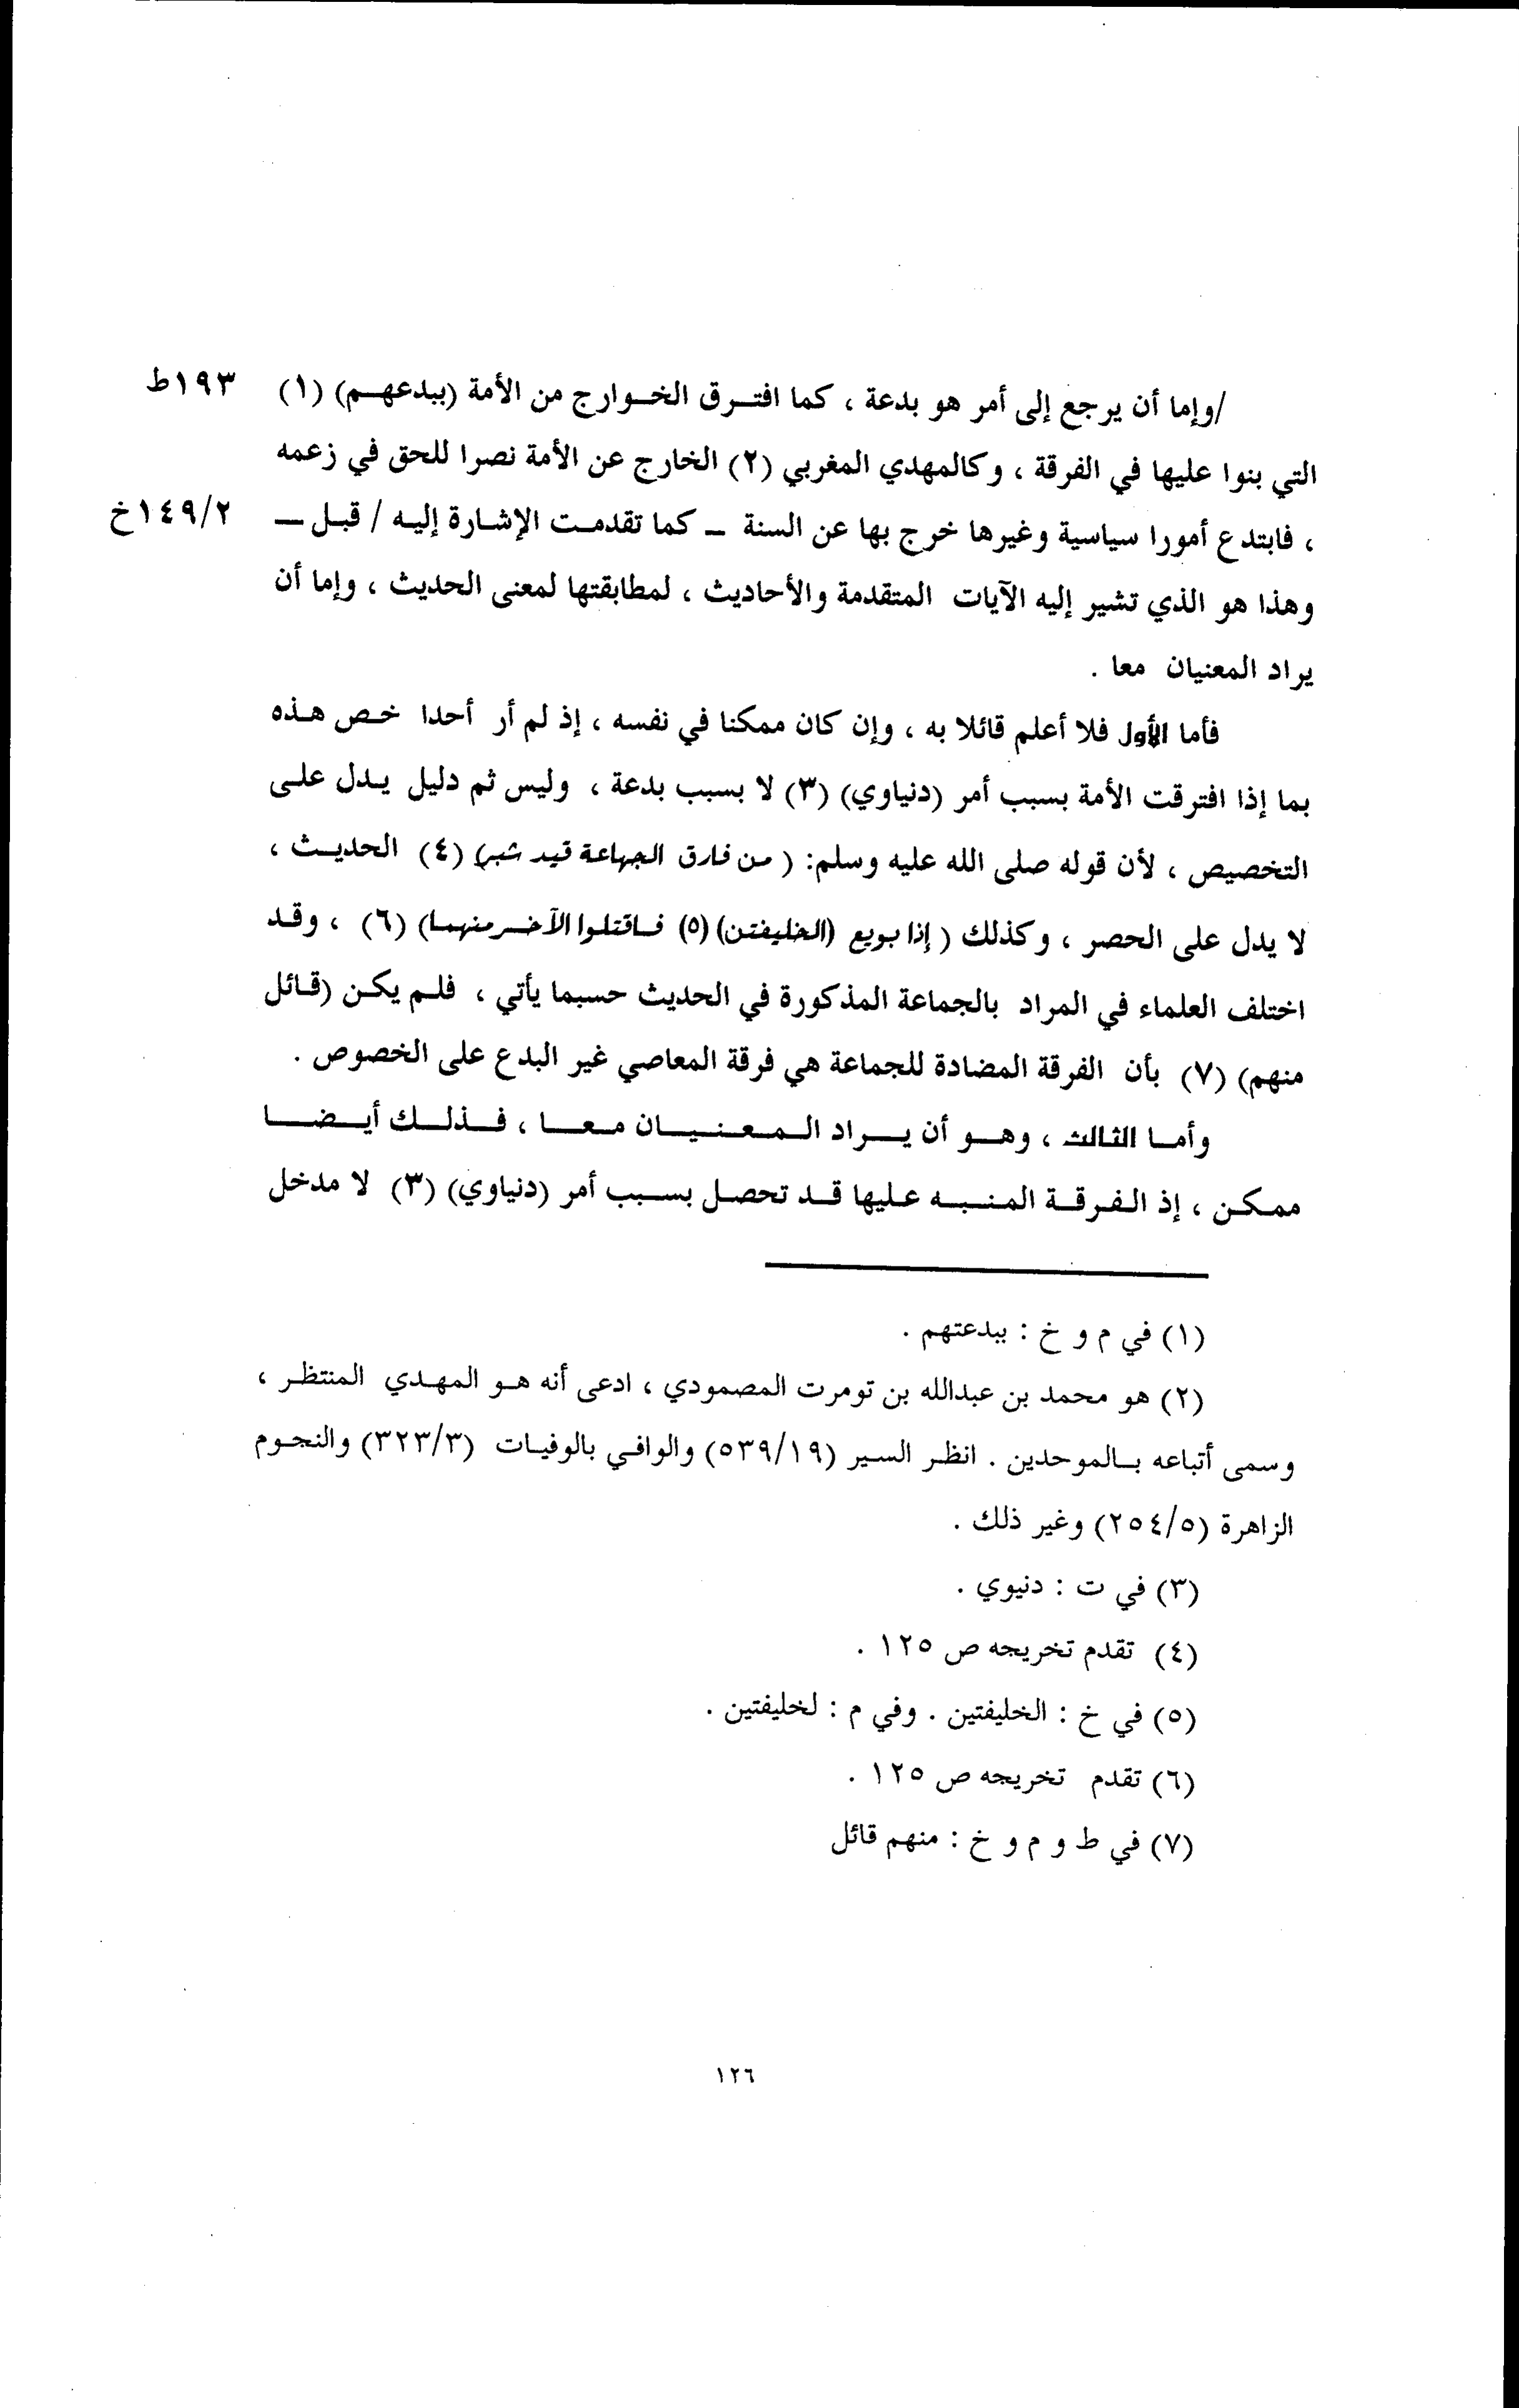 /وإما أن يرجع إلى أمر هو بدعة ، كما افترق الخوارج من الأمة (ببدعهم) (١) ١٩٣ط
التي بنوا عليها في الفرقة ، وكالمهدي المغربي (٢) الخارج عن الأمة نصرا للحق في زعمه
، فابتدع أمورا سياسية وغيرها خرج بها عن السنة – كما تقدمت الإشارة إليه / قبل – ١٤٩/٢خ
وهذا هو الذي تشير إليه الآيات المتقدمة والأحاديث ، لمطابقتها لمعنى الحديث ، وإما أن
يراد المعنيان معا .
فأما الأول فلا أعلم قائلا به ، وإن كان ممكنا في نفسه ، إذ لم أر أحدا خص هذه
بما إذا افترقت الأمة بسبب أمر (دنياوي) (٣) لا بسبب بدعة ، وليس ثم دليل يدل على
التخصيص ، لأن قوله صلى الله عليه وسلم: ( من فارق الجماعة قيد شبر) (٤) الحديث ،
لا يدل على الحصر ، وكذلك ( إذا بويع (الخليفتن) (٥) فاقتلوا الآخر منهما) (٦) ، وقد
اختلف العلماء في المراد بالجماعة المذكورة في الحديث حسبما يأتي ، فلم يكن (قائل
منهم) (٧) بأن الفرقة المضادة للجماعة هي فرقة المعاصي غير البدع على الخصوص .
وأما الثالث ، وهو أن يراد المعنيان معا ، فذلك أيضا
ممكن ، إذ الفرقة المنبه عليها قد تحصل بسبب أمر (دنياوي) (٣) لا مدخل
(١) في م و خ : ببدعتهم .
(٢) هو محمد بن عبدالله بن تومرت المصمودي ، ادعى أنه هو المهدي المنتظر ،
وسمى أتباعه بالموحدين . انظر السير (٥٣٩/١٩) والوافي بالوفيات (٣٢٣/٣) والنجوم
الزاهرة (٢٥٤/٥) وغير ذلك .
(٣) في ت : دنيوي .
(٤) تقدم تخريجه ص ١٢٥ .
(٥) في خ : الخليفتين . وفي م : لخليفتين .
(٦) تقدم تخريجه ص ١٢٥ .
(٧) في ط و م و خ : منهم قائل
١٢٦